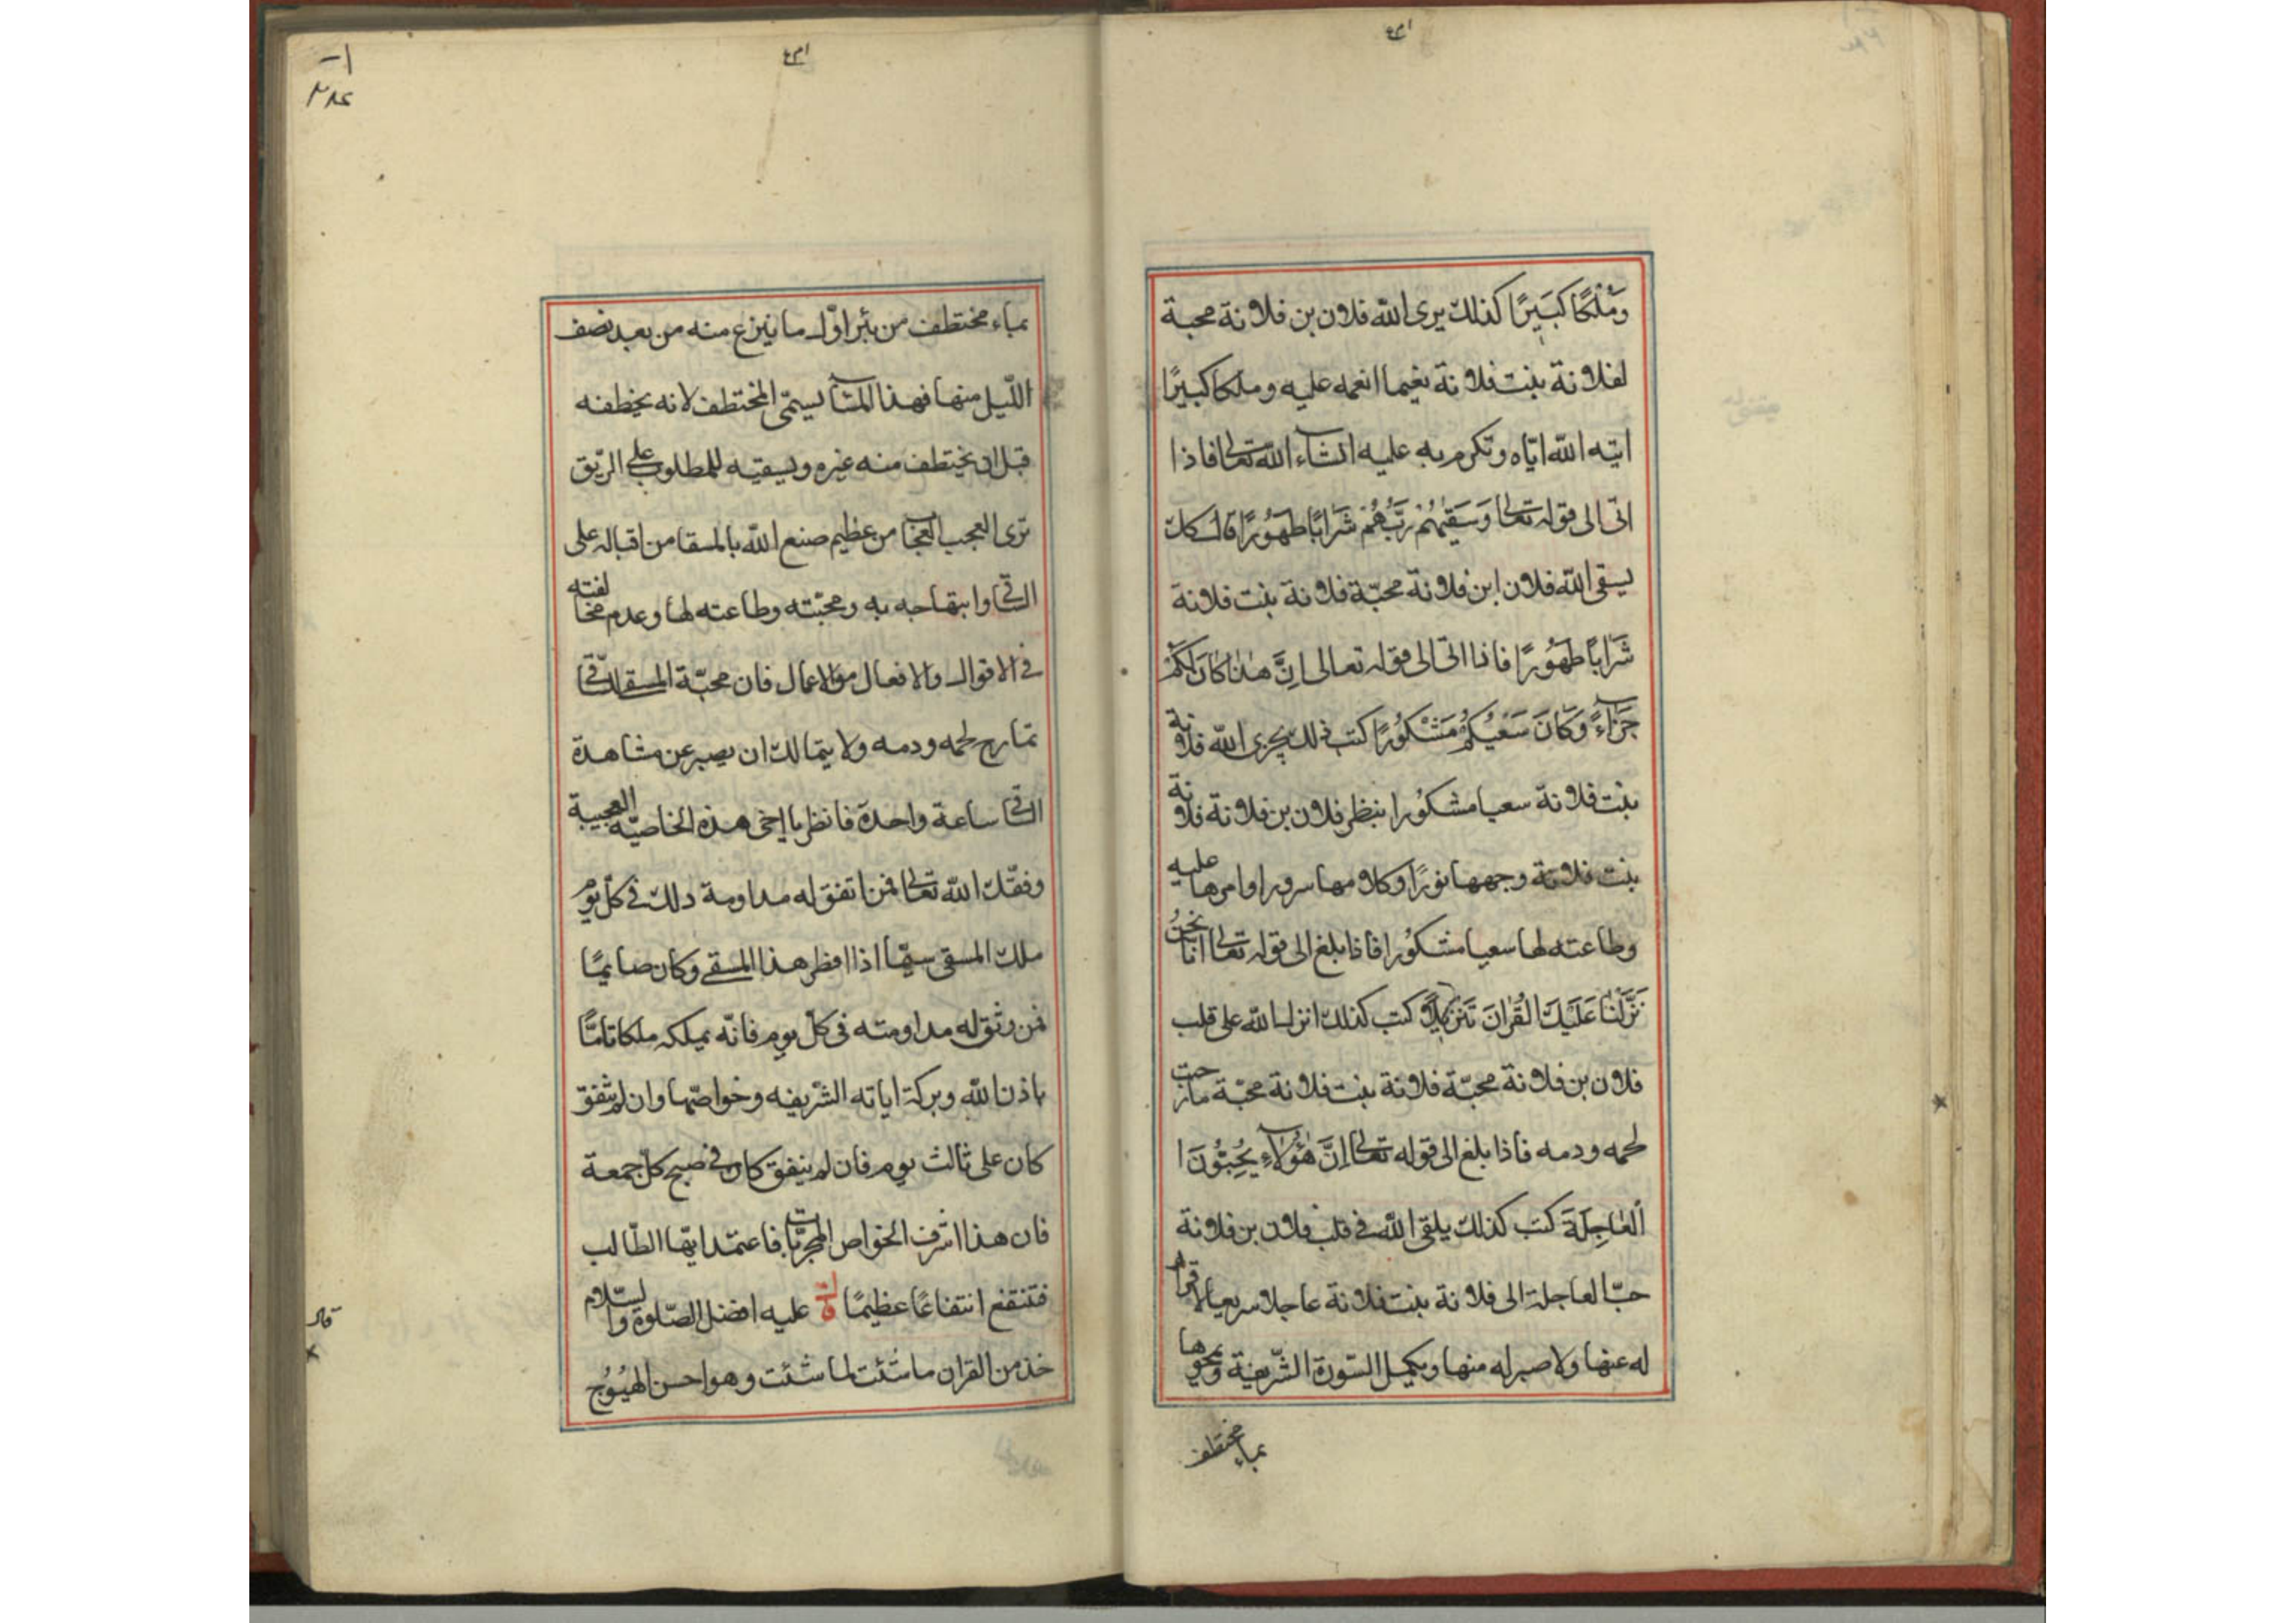 وَمُلْكًا كَبِيرًا كذلك يرى الله فلان بن فلانة محبة
لفلانة بنت فلانة نعيما انعمه عليه وملكا كبيرًا
اتيه الله اتاه وتكرم به عليه انشاء الله تعالى فاذا
اتى الى قوله تعالى وَسَقٰيهُمْ رَبُّهُمْ شَرَابًا طَهُورًا قال كذلك
يسقى الله فلان ابن فلانة محبّة فلانة بنت فلانة
شَرَابًا طَهُورًا فاذا اتى الى قوله تعالى اِنَّ هٰذَا كَانَ لَكُمْ
جَزَآءً وَكَانَ سَعْيُكُمْ مَشْكُورًا كتب كذلك يجرى الله فلانة
بنت فلانة سعيا مشكورا بنظر فلان بن فلانة فلانة
بنت فلانة وجهها نورًا وكلامها سرورا وامرها عليه
وطاعته لها سعيا مشكورا فاذا بلغ الى قوله تعالى انا نَحْنُ
نَزَّلْنَا عَلَيْكَ الْقُرْانَ تَنْزِيلًا كتب كذلك انزل الله على قلب
فلان بن فلانة محبّة فلانة بنت فلانة محبّة مازجت
لحمه ودمه فاذا بلغ الى قوله تعالى اِنَّ هٰؤُلَآءِ يُحِبُّونَ ا
لْعَاجِلَةَ كتب كذلك يلقى الله فى قلب فلان بن فلانة
حبّا لعاجلة الى فلانة بنت فلانة عاجلا سريعا لا قرار
له عنها ولا صبر له منها ويكمل السّورة الشّريفة ويمحوها
بماء مختطف
بماء مختطف من بئر اوّل ما ينزع منه من بعد نصف
اللّيل منها فهذا الماء يسمّى المختطف لانه يخطفه
قبل ان يختطف منه غيره ويسقيه للمطلوب على الرّيق
ترى العجب العجاب من عظيم صنع الله بالمسقا من اقباله على
الساقى وابتهاجه به ومحبّته وطاعته لها وعدم مخالفته
فى الاقوال والافعال والاعمال فان محبّة المسقى للساقى
تمازج لحمه ودمه ولا يتمالك ان يصبر عن مشاهدة
الساقى ساعة واحدة فانظر يا اخى هذه الخاصيّة العجيبة
وفقّك الله تعالى فمن اتفق له مداومة ذلك فى كلّ يوم
ملك المسقى سيّما اذا افطر هذا المسقى وكان صايمًا
فمن وثق له مداومته فى كلّ يوم فانّه يملكه ملكا تامًّا
باذن الله وبركة اياته الشّريفه وخواصّها وان لم يتّفق
كان على ثالث يوم فان لم يتفق كان فى صبح كلّ جمعة
فان هذا اشرف الخواص المجرّبات فاعتمد ايّها الطّالب
فتنتفع انتفاعًا عظيمًا قال عليه افضل الصّلوة والسّلام
خذ من القران ما شئت لما شئت وهو احسن
قال